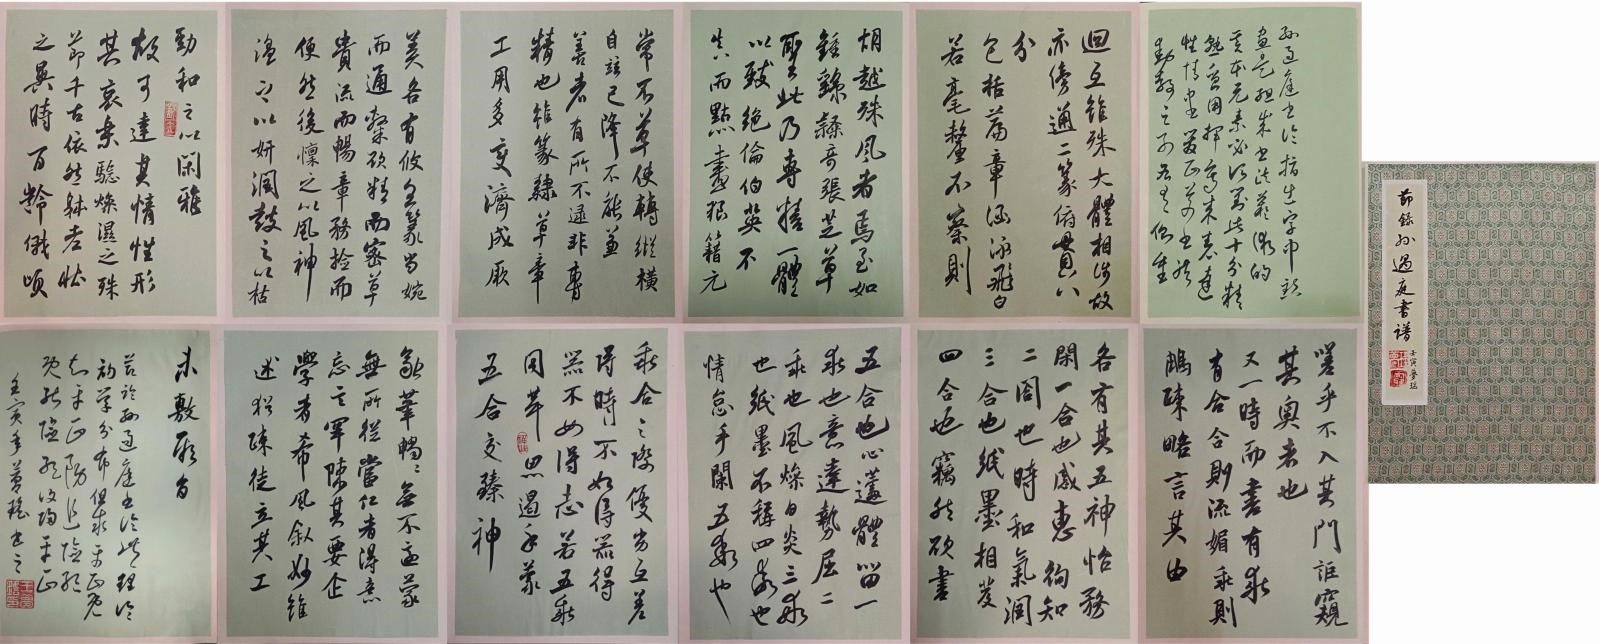 節錄孫過庭書譜
壬寅夢瑶
迴互雖殊大體相涉故
亦傍通二篆俯貫八
分
包括篇章涵泳飛白
若毫釐不察則
胡越殊風者焉至如
鍾繇隸奇張芝草
聖此乃專精一體
以致絕倫伯英不
真而點畫狼籍元
常不草使轉縱橫
自茲已降不能兼
善者有所不逮非專
精也雖篆隸草章
工用多變濟成厥
美各有攸宜篆尚婉
而通隸欲精而密草
貴流而暢章務撿而
便然後凜之以風神
溫之以妍潤鼓之以枯
勁和之以閑雅
故可達其情性形
其哀樂驗燥濕之殊
節千古依然體老壯
之異時百齡俄頃
嗟乎不入其門詎窺
其奧者也
又一時而書有乖
有合合則流媚乖則
雕疎略言其由
各有其五神怡務
閑一合也感惠徇知
二合也時和氣潤
三合也紙墨相發
四合也偶然欲書
五合也心遽體留一
乖也意違勢屈二
乖也風燥日炎三乖
也紙墨不稱四乖也
情怠手闌五乖也
乖合之際優劣互差
得時不如得器得
器不如得志若五乖
同萃思遏手蒙
五合交臻神
融筆暢暢無不適蒙
無所從當仁者得意
忘言罕陳其要企
學者希風敘妙雖
述猶疎徒立其工
未敷厥旨
初學分布但求平正既
知平正務追險絕
既能險絕復歸平正
壬寅年夢瑶书之